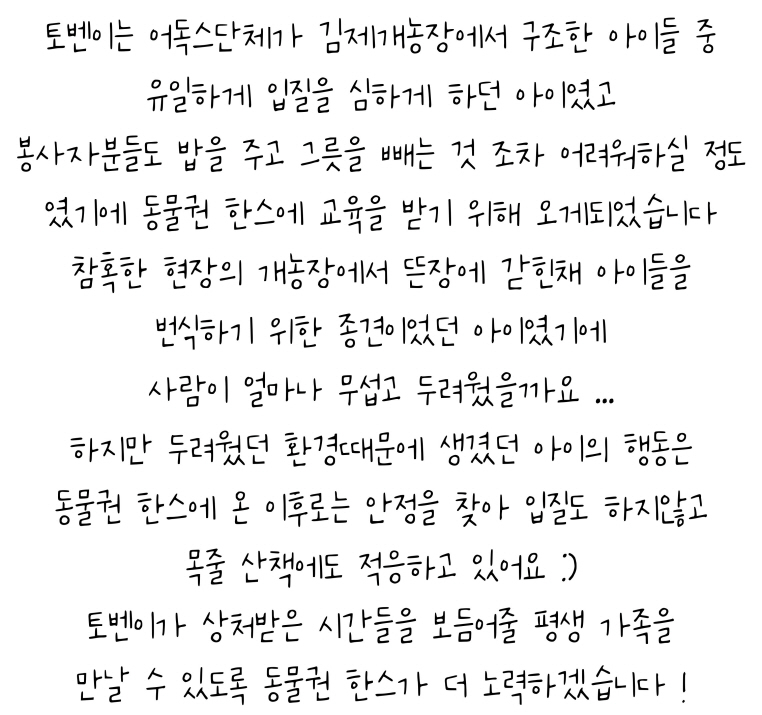 토벤이는 어독스단체가 김제개농장에서 구조한 아이들 중
유일하게 입질을 심하게 하던 아이였고
봉사자분들도 밥을 주고 그릇을 빼는 것 조차 어려워하실 정도
였기에 동물권 한스에 교육을 받기 위해 오게되었습니다
참혹한 현장의 개농장에서 뜬장에 갇힌채 아이들을
번식하기 위한 종견이었던 아이였기에
사람이 얼마나 무섭고 두려웠을까요 ...
하지만 두려웠던 환경때문에 생겼던 아이의 행동은
동물권 한스에 온 이후로는 안정을 찾아 입질도 하지않고
목줄 산책에도 적응하고 있어요 :)
토벤이가 상처받은 시간들을 보듬어줄 평생 가족을
만날 수 있도록 동물권 한스가 더 노력하겠습니다 !